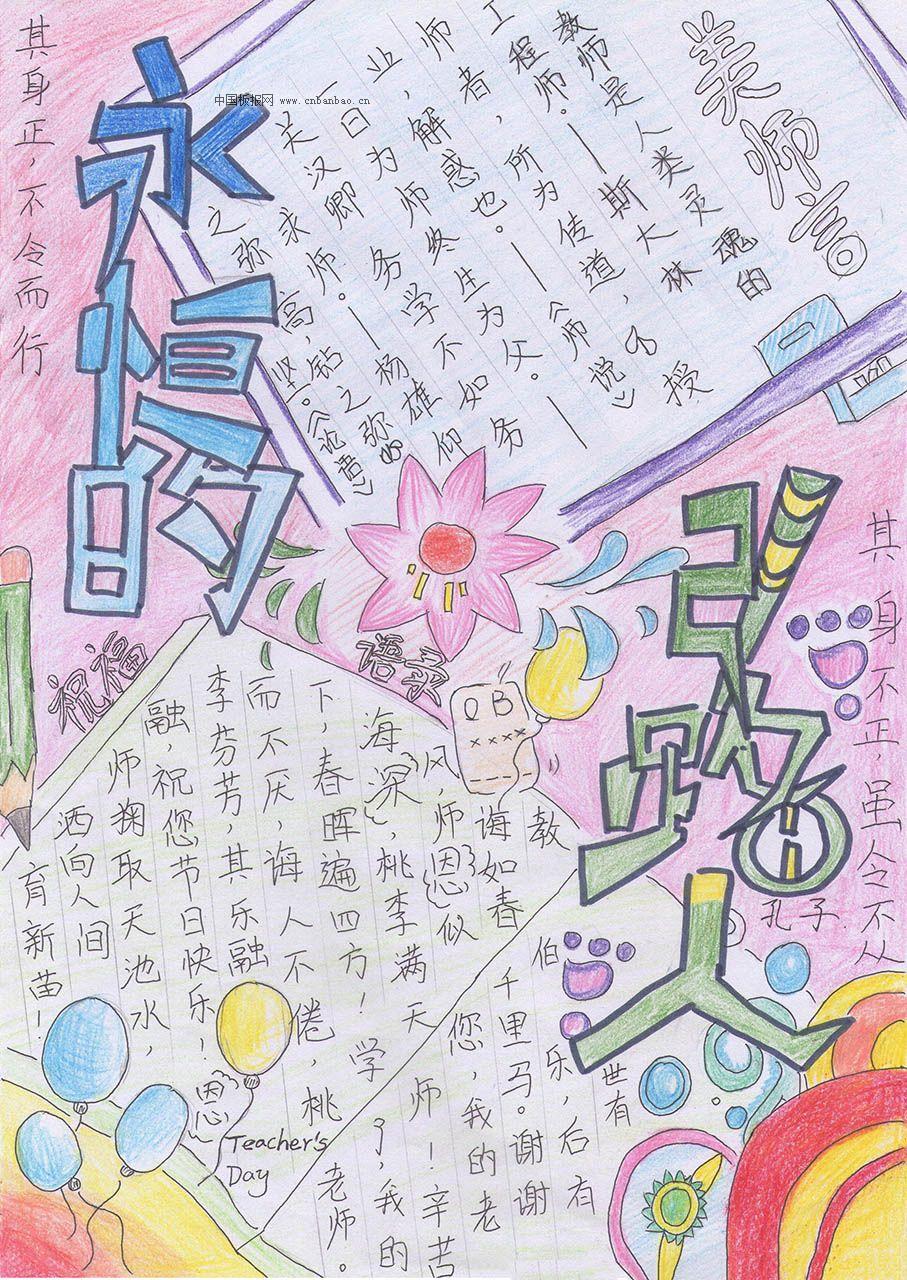 中国板报网 www.cnbanbao.cn
其身正，不令而行
永恒的
引路人
美师言
教师是人类灵魂的
工程师。——斯大林
师者，所为传道、授
业解惑也。——《师说》
一日为师终生为父。
——关汉卿
务学不如务
求师。——杨雄
仰之弥高，钻之弥
坚。《论语》
其身不正，虽令不从
孔子
祝福
语录
QB
××××
教
诲如春
风，师恩似
海深，桃李满天
下，春晖遍四方！学
而不厌，诲人不倦，桃
李芬芳，其乐融
融，祝您节日快乐！
师掬取天池水，
洒向人间
育新苗！
世有
伯乐，后有
千里马。谢谢
您，我的老
师！辛苦
了，我的
老师。
恩
Teacher's
Day